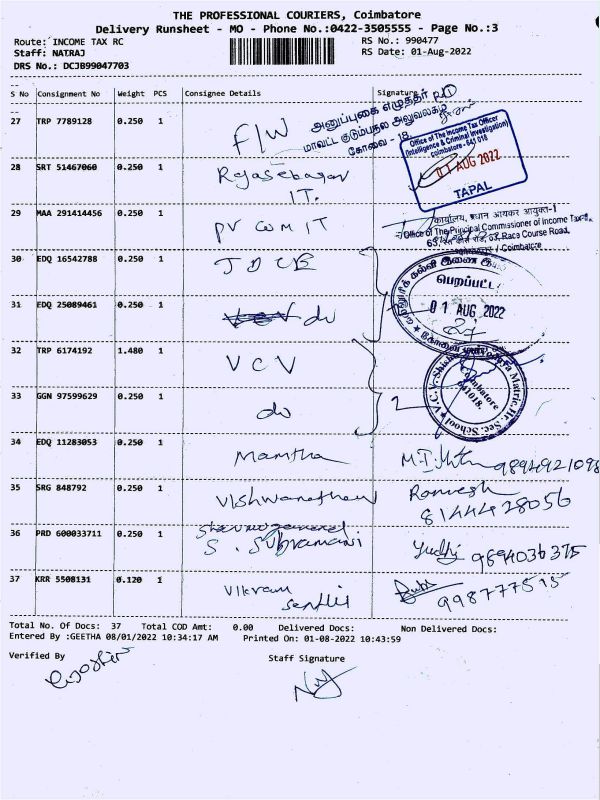 THE PROFESSIONAL COURIERS, Coimbatore
Delivery Runsheet - MO - Phone No.:0422-3505555 - Page No.:3
Route: INCOME TAX RC
RS No.: 990477
Staff: NATRAJ
RS Date: 01-Aug-2022
DRS No.: DCJB99047703
S No Consignment No Weight PCS Consignee Details Signature
அனுப்புகை எழுத்தர்
மாவட்ட குடும்பநல அலுவலகம்
கோவை - 18.
27 TRP 7789128 0.250 1 F/W
Office of the Income Tax Officer
(Intelligence & Criminal Investigation)
coimbatore - 641 018
01 AUG 2022
TAPAL
28 SRT 51467060 0.250 1
IT.
कार्यालय, प्रधान आयकर आयुक्त-I
Office of The Principal Commissioner of Income Tax-I
63, रेस कोर्स रोड, 63, Race Course Road,
/ Coimbatore
29 MAA 291414456 0.250 1 PV COM IT
30 EDQ 16542788 0.250 1
பெறப்பட்ட
01 AUG 2022
31 EDQ 25089461 0.250 1 do
32 TRP 6174192 1.480 1 VCV
Coimbatore
641018.
33 GGN 97599629 0.250 1 do 2
34 EDQ 11283053 0.250 1 Mamtha
35 SRG 848792 0.250 1 Vishwanathan Ramesh
8144428056
36 PRD 600033711 0.250 1
S. Subramani 9894036375
37 KRR 5508131 0.120 1 Vikram
Senthil
Total No. Of Docs: 37 Total COD Amt: 0.00 Delivered Docs: Non Delivered Docs:
Entered By :GEETHA 08/01/2022 10:34:17 AM Printed On: 01-08-2022 10:43:59
Verified By Staff Signature